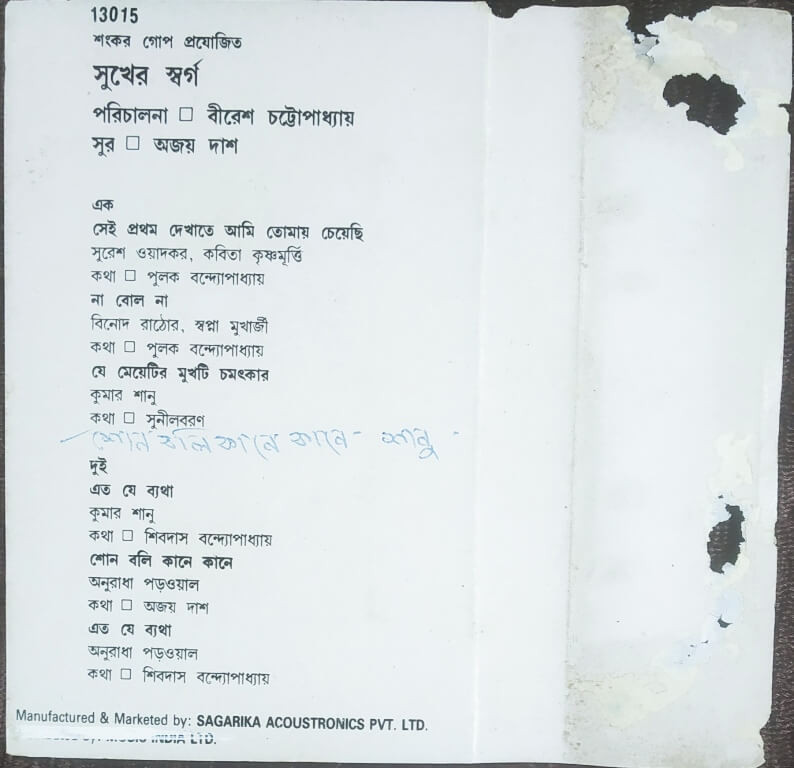 13015
শংকর গোপ প্রযোজিত
সুখের স্বর্গ
পরিচালনা □ বীরেশ চট্টোপাধ্যায়
সুর □ অজয় দাশ
এক
সেই প্রথম দেখাতে আমি তোমায় চেয়েছি
সুরেশ ওয়াদকর, কবিতা কৃষ্ণমূর্ত্তি
কথা □ পুলক বন্দ্যোপাধ্যায়
না বোল না
বিনোদ রাঠোর, স্বপ্না মুখার্জী
কথা □ পুলক বন্দ্যোপাধ্যায়
যে মেয়েটির মুখটি চমৎকার
কুমার শানু
কথা □ সুনীলবরণ
শোন বলি কানে কানে - শানু
দুই
এত যে ব্যথা
কুমার শানু
কথা □ শিবদাস বন্দ্যোপাধ্যায়
শোন বলি কানে কানে
অনুরাধা পড়ওয়াল
কথা □ অজয় দাশ
এত যে ব্যথা
অনুরাধা পড়ওয়াল
কথা □ শিবদাস বন্দ্যোপাধ্যায়
Manufactured & Marketed by: SAGARIKA ACOUSTRONICS PVT. LTD.
MUSIC INDIA LTD.